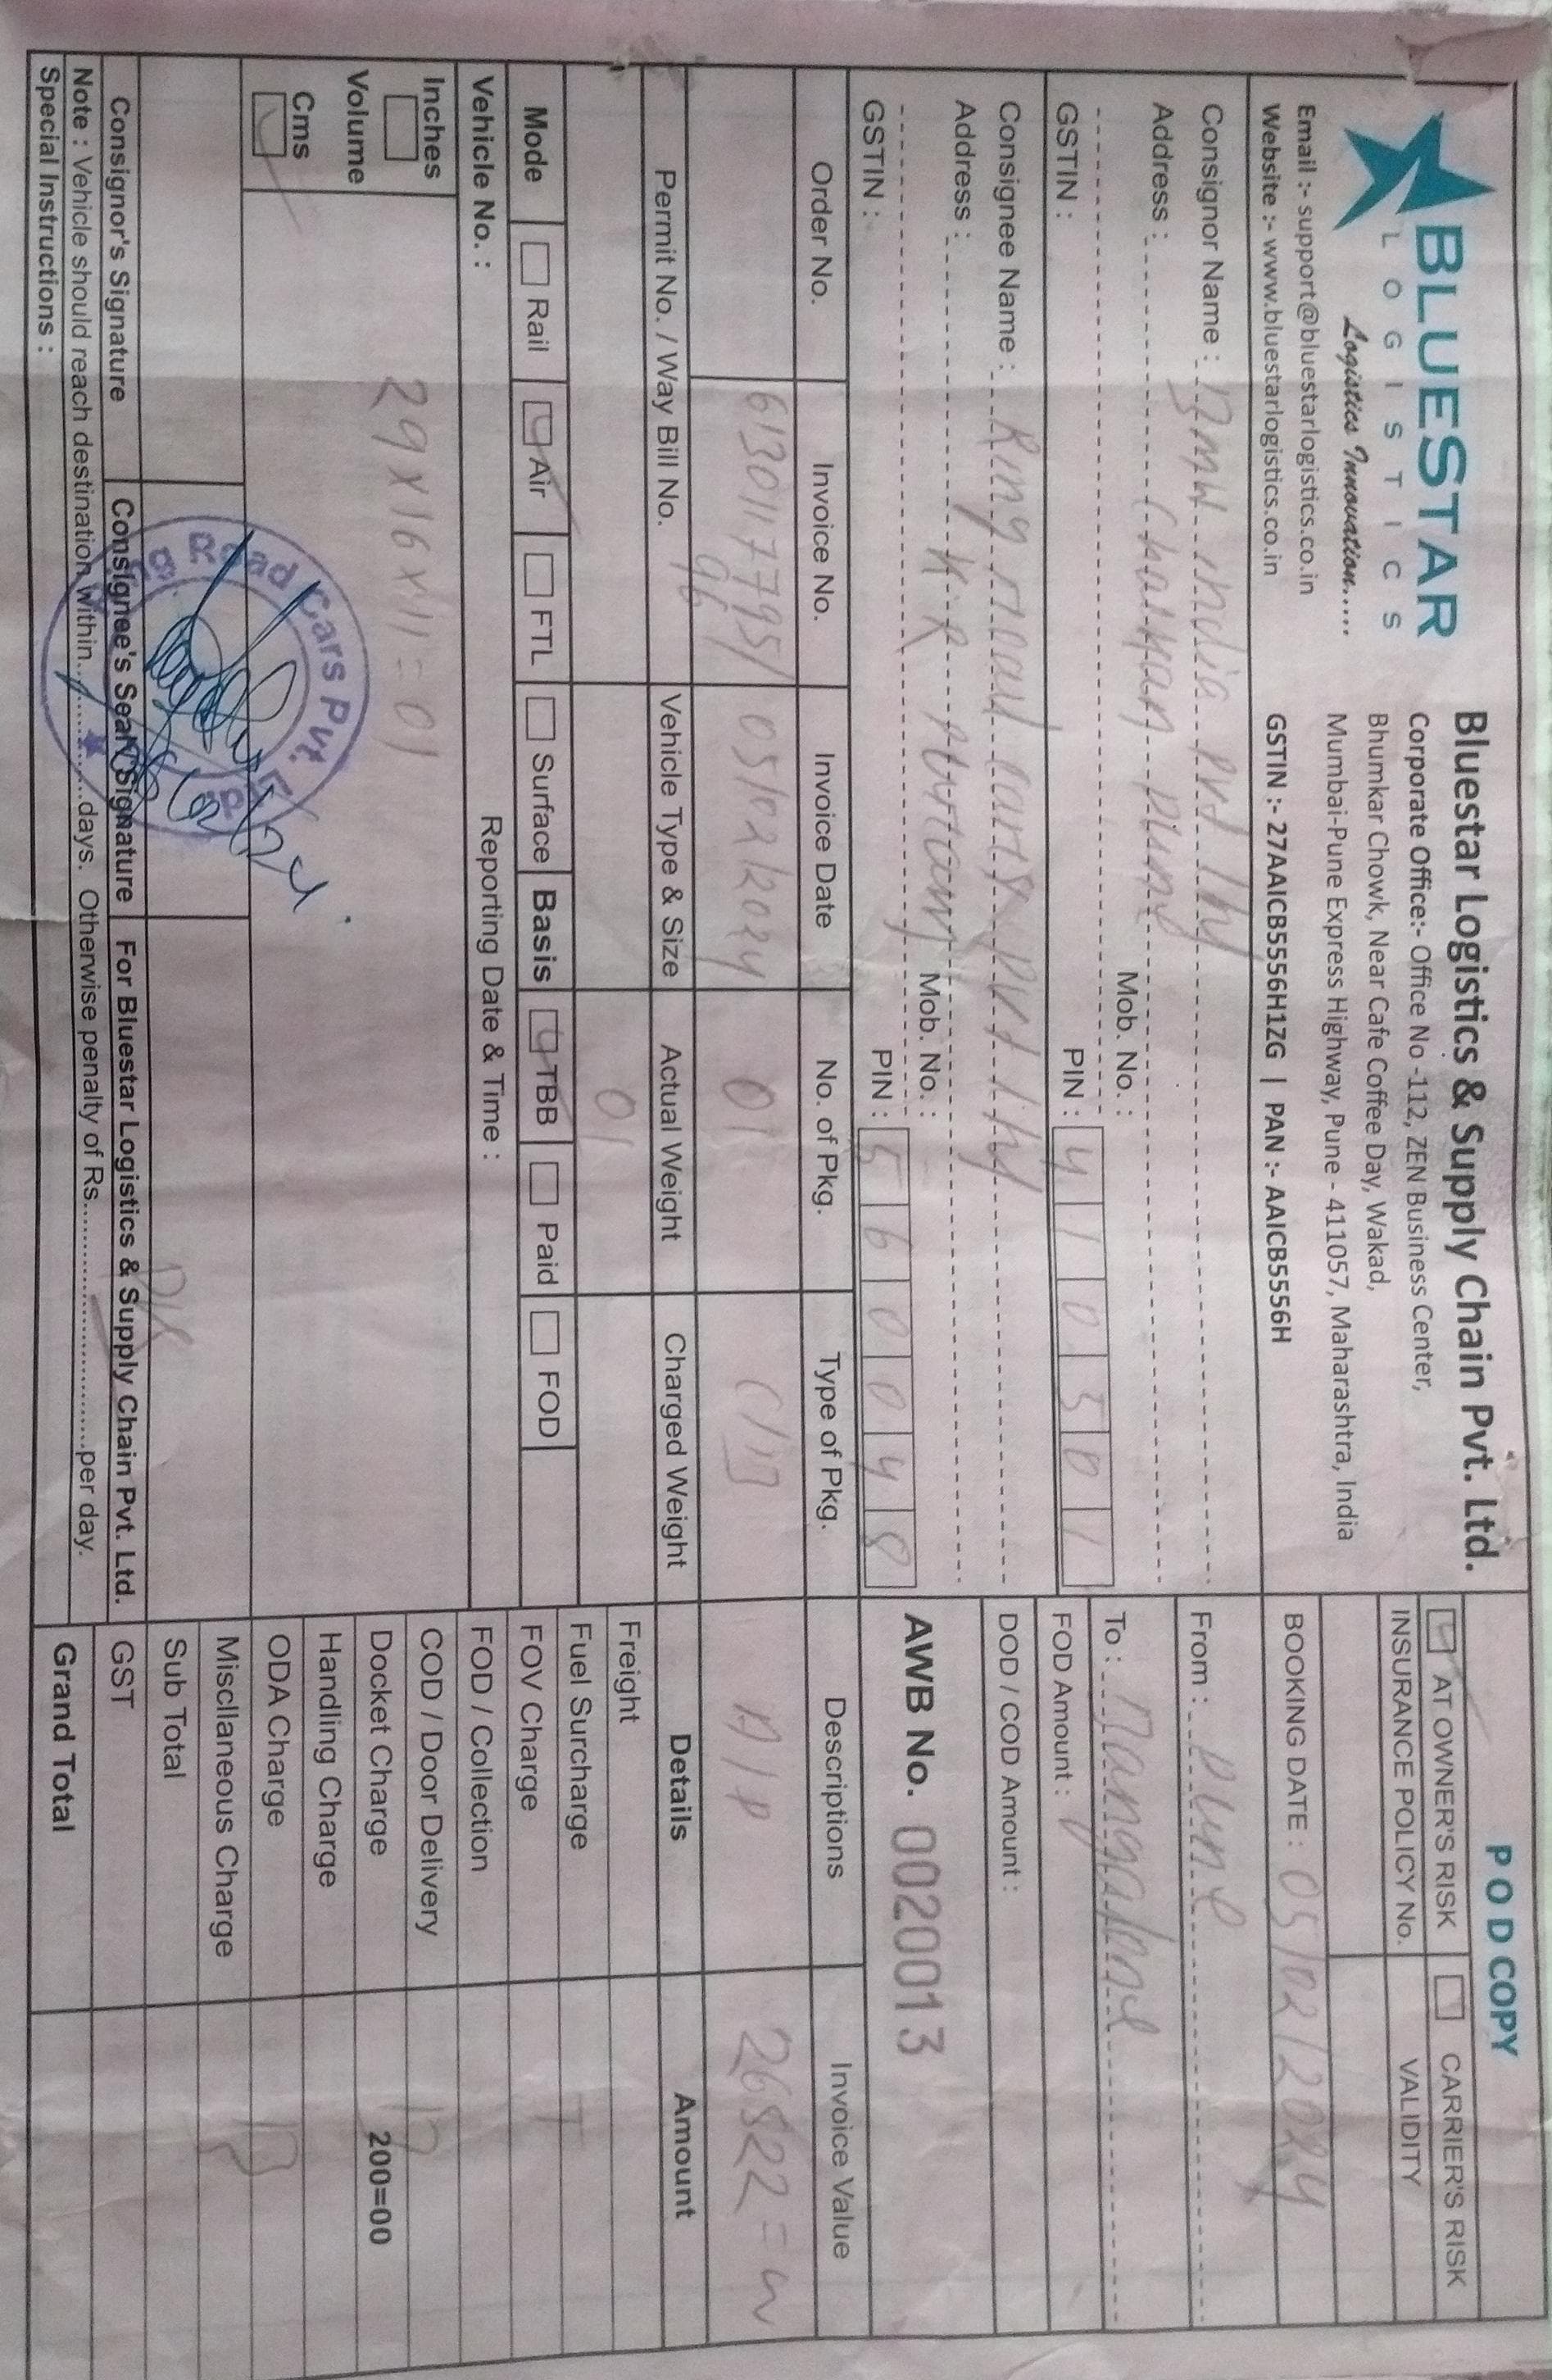 BLUESTAR
LOGISTICS
Logistics Innovation.....
Email :- support@bluestarlogistics.co.in
Website :- www.bluestarlogistics.co.in
Bluestar Logistics & Supply Chain Pvt. Ltd.
Corporate Office:- Office No -112, ZEN Business Center,
Bhumkar Chowk, Near Cafe Coffee Day, Wakad,
Mumbai-Pune Express Highway, Pune - 411057, Maharashtra, India
GSTIN :- 27AAICB5556H1ZG | PAN :- AAICB5556H
POD COPY
AT OWNER'S RISK CARRIER'S RISK
INSURANCE POLICY No. VALIDITY
BOOKING DATE : 05/02/2024
Consignor Name : BMW india pvt
Address : Chaikan pune
Mob. No. :
GSTIN : PIN : 410501
From : Pune
To : Bangalore
FOD Amount :
DOD / COD Amount :
Consignee Name : Ring road cars pvt
Address : K.R
Mob. No. :
GSTIN : PIN : 560048
AWB No. 0020013
Order No. Invoice No. Invoice Date No. of Pkg. Type of Pkg. Descriptions Invoice Value
6130117795/ 05/02/2024 01 C/B A/P 26522=
96
Permit No. / Way Bill No. Vehicle Type & Size Actual Weight Charged Weight Details Amount
01
Mode Rail Air FTL Surface Basis TBB Paid FOD
Vehicle No. : Reporting Date & Time :
Inches
Volume
Cms
29x16x11=01
Freight
Fuel Surcharge
FOV Charge
FOD / Collection
COD / Door Delivery
Docket Charge 200=00
Handling Charge
ODA Charge
Miscllaneous Charge
Sub Total
GST
Grand Total
Ring Road Cars Pvt. Ltd.
Consignor's Signature Consignee's Seal/Signature For Bluestar Logistics & Supply Chain Pvt. Ltd.
Note : Vehicle should reach destination within..............days. Otherwise penalty of Rs..............................per day.
Special Instructions :